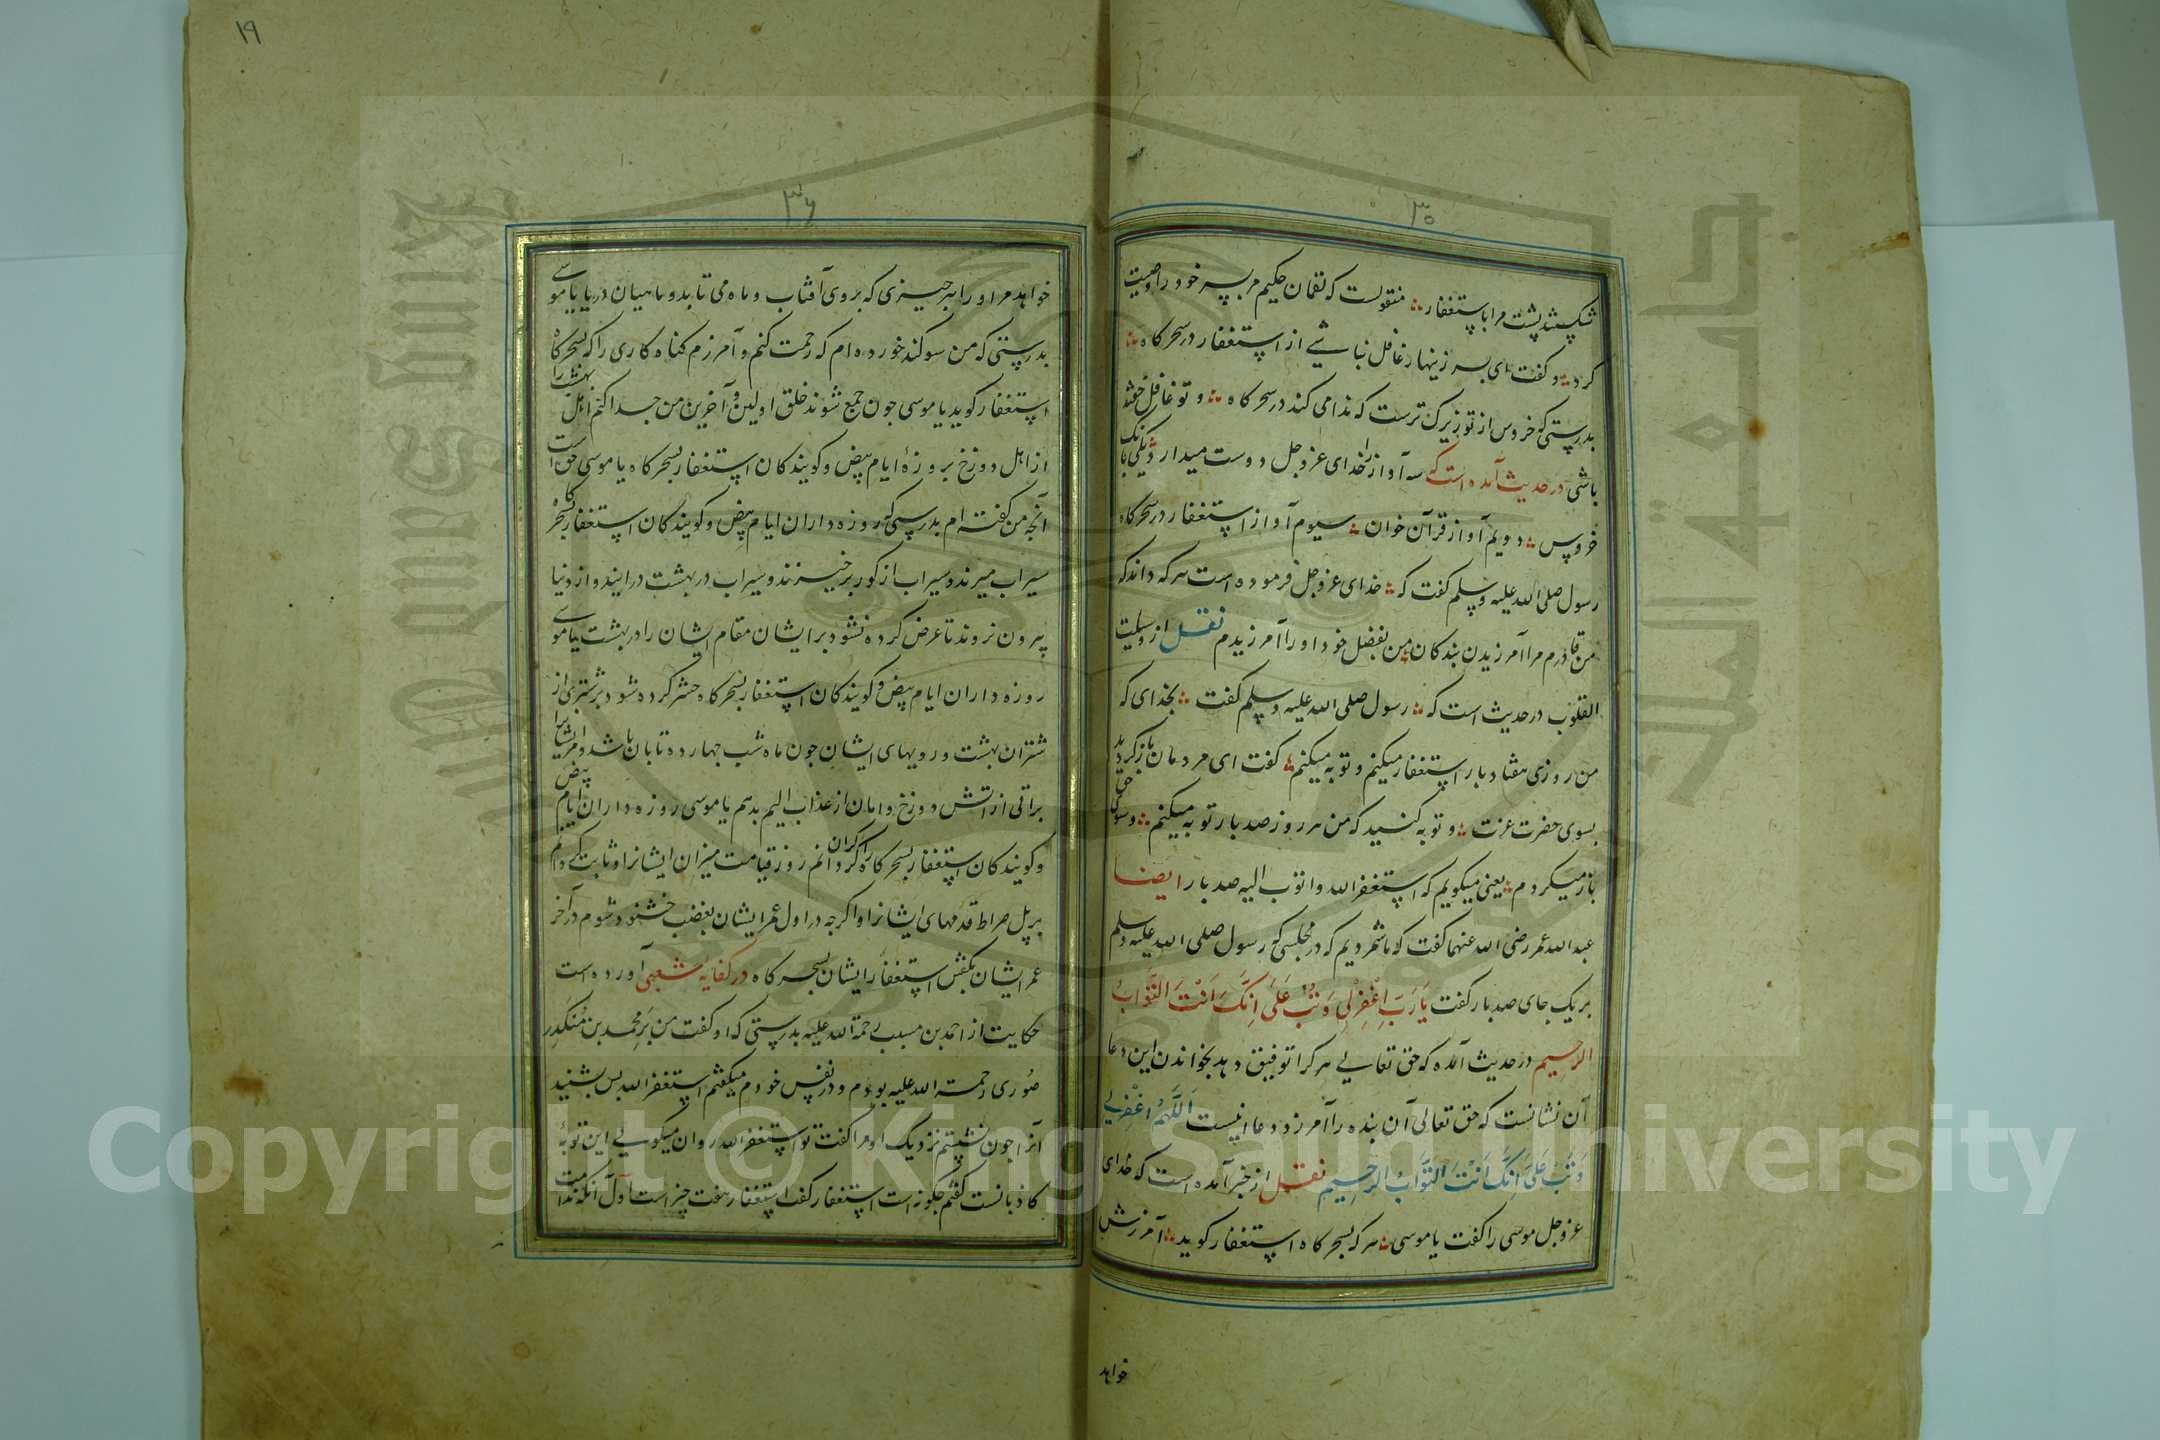 ۳۵
شکستند پشت مرا باستغفار منقولست که لقمان حکیم مر پسر خود را وصیت
کرد و گفت ای پسر زینهار غافل نباشے از استغفار در سحر کاه
بدرستی که خروس از تو زیرک ترست که ندا می کند در سحر کاه و تو غافل خفته
باشی در حدیث آمده است که سه آواز را خدای عز وجل دوست میدارد یکی بانک
خروس دویم آواز قرآن خوان سیوم آواز استغفار در سحر کاه
رسول صلی الله علیه وسلم گفت که خدای عز وجل فرموده است هر که داند که
من قادرم مر آمرزیدن بندکان من بفضل خود او را آمرزیدم نقل از وسیلت
القلوب در حدیث است که رسول صلی الله علیه وسلم گفت بخدای که
من روزی هفتاد بار استغفار میکنم و توبه میکنم گفت ای مردمان باز کردید
بسوی حضرت عزت و توبه کنید که من هر روز صد بار توبه میکنم و سوی حق
باز میکردم یعنی میکویم که استغفر الله واتوب الیه صد بار ایضا
عبد الله عمر رضی الله عنهما گفت که ما شمردیم که در مجلسی که رسول صلی الله علیه وسلم
بر یک جای صد بار گفت یَا رَبِّ اِغْفِرْلِی وَتُبْ عَلَیَّ اِنَّکَ اَنْتَ التَّوَّابُ
الرحیم در حدیث آمده که حق تعالے هر کرا توفیق دهد بخواندن این دعا
آن نشانست که حق تعالی آن بنده را آمرزد و دعا اینست اَللّٰهُمَّ اغْفِرْلِی
وَتُبْ عَلَیَّ اِنَّکَ اَنْتَ التَّوَّابُ الرَّحِیم نقل از خبر آمده است که خدای
عز وجل موسی را گفت یا موسی هر که بسحر کاه استغفار کوید آمرزش
خواهد
۱۹
۳۶
خواهد مر او را هر چیزی که بر وی آفتاب و ماه می تابد و ماهیان دریا یا موسے
بدرستی که من سوکند خورده ام که رحمت کنم و آمرزم کناه کاری را که بسحر کاه
استغفار کوید یا موسی چون جمع شوند خلق اولین و آخرین من جدا کنم اهل بهشت را
از اهل دوزخ بروزۀ ایام بیض و کویندکان استغفار بسحر کاه یا موسی حق است
آنچه من گفته ام بدرستی که روزه داران ایام بیض و کویندکان استغفار بسحر کاه
سیراب میرند و سیراب از کور برخیزند و سیراب در بهشت درایند و از دنیا
بیرون نروند تا عرض کرده نشود بر ایشان مقام ایشان را در بهشت یا موسے
روزه داران ایام بیض و کویندکان استغفار بسحر کاه حشر کرده شود بر شتری از
شتران بهشت و رویهای ایشان چون ماه شب چهارده تابان باشد و مر ایشانرا
براتی از اتش دوزخ و امان از عذاب الیم بدهم یا موسی روزه داران ایام بیض
و کویندکان استغفار بسحر کاه را کران کردانم روز قیامت میزان ایشانرا و ثابت کردانم
بر پل صراط قدمهای ایشانرا و اکرچه در اول عمر ایشان بغضب خشنود شوم در آخر
عمر ایشان بکفتن استغفار ایشان بسحر کاه در کفایۀ شعبی آورده است
حکایت از احمد بن مسیب رحمة الله علیه بدرستی که او گفت من بر محمد بن مُنکَدِر
صُوری رحمة الله علیه بودم و در نفس خودم میکفتم استغفر الله پس بشنید
آنرا چون نشستم نزدیک او مرا گفت تو استغفر الله روان میکویی این توبۀ
کاذبانست گفتم چکونه است استغفار گفت استغفار هفت چیز است اول آنکه ندامت
Copyright © King Saud University